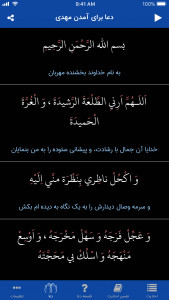 9:41 AM
100%
دعا برای آمدن مهدی
بِسمِ اللّٰهِ الرَّحْمٰنِ الرَّحیمِ
به نام خداوند بخشنده مهربان
اَللّـهُمَّ اَرِنيِ الطَّلْعَةَ الرَّشيدَةَ ، وَ الْغُرَّةَ
الْحَميدَةَ
خدایا آن جمال با رشادت، و پیشانی ستوده را به من بنمایان
وَ اكْحُلْ ناظِري بِنَظْرَة منِّي اِلَيْهِ
و سرمه وصال دیدارش را به یک نگاه به دیده ام بکش
وَ عَجِّلْ فَرَجَهُ وَ سَهِّلْ مَخْرَجَهُ ، وَ اَوْسِعْ
مَنْهَجَهُ وَ اسْلُكْ بي مَحَجَّتَهُ